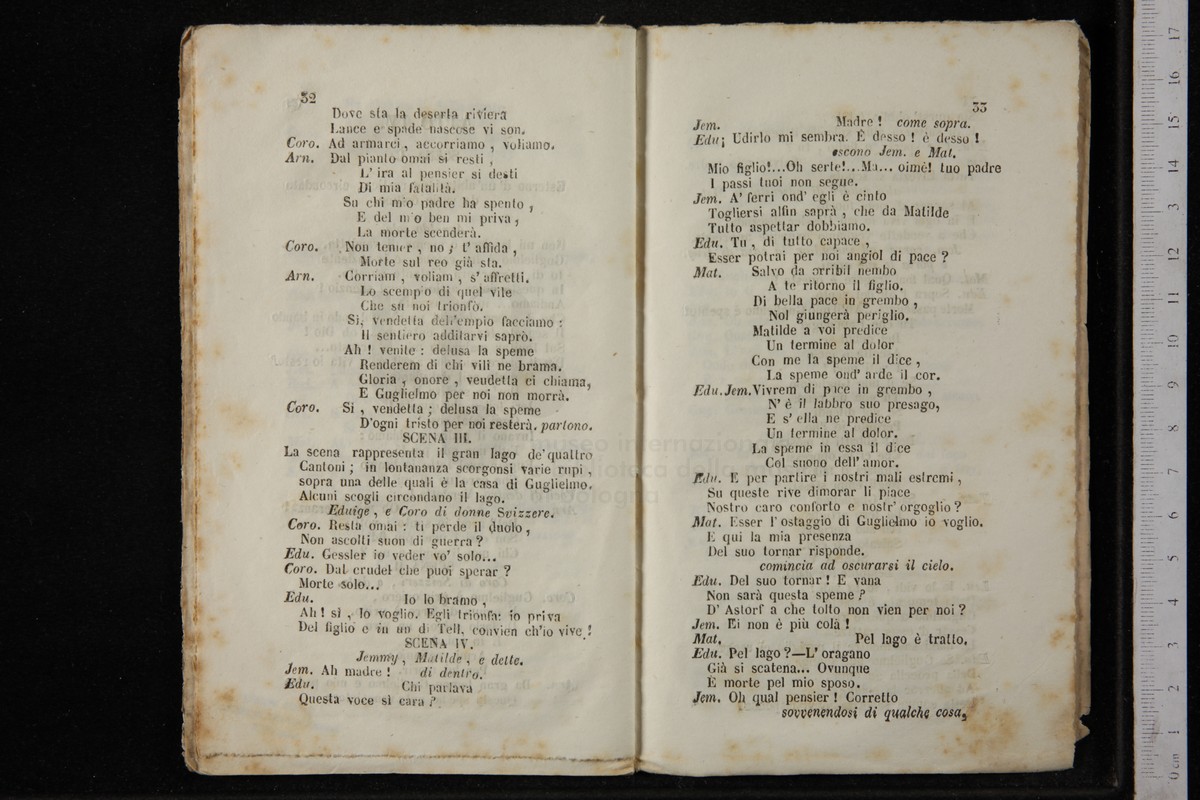 32
Dove sta la deserta riviera
Lance e spade nascose vi son.
Coro. Ad armarci, accorriamo, voliamo.
Arn. Dal pianto omai si resti,
L' ira al pensier si desti
Di mia fatalità.
Su chi m'o padre ha spento,
E del m'o ben mi priva,
La morte scenderà.
Coro. Non temer, no; t' affida,
Morte sul reo già sta.
Arn. Corriam, voliam, s' affretti.
Lo scempio di quel vile
Che su noi trionfò.
Si, vendetta dell'empio facciamo:
Il sentiero additarvi saprò.
Ah! venite: delusa la speme
Renderem di chi vili ne brama.
Gloria, onore, vendetta ci chiama,
E Guglielmo per noi non morrà.
Coro. Si, vendetta; delusa la speme
D'ogni tristo per noi resterà. partono.
SCENA III.
La scena rappresenta il gran lago de' quattro
Cantoni; in lontananza scorgonsi varie rupi,
sopra una delle quali è la casa di Guglielmo.
Alcuni scogli circondano il lago.
Eduige, e Coro di donne Svizzere.
Coro. Resta omai: ti perde il duolo,
Non ascolti suon di guerra?
Edu. Gessler io veder vo' solo...
Coro. Dal crudel che puoi sperar?
Morte solo...
Edu. Io lo bramo,
Ah! si, lo voglio. Egli trionfa: io priva
Del figlio e in un di Tell, convien ch'io vive!
SCENA IV.
Jemmy, Matilde, e dette.
Jem. Ah madre! di dentro.
Edu. Chi parlava
Questa voce si cara?
33
Jem. Madre! come sopra.
Edu; Udirlo mi sembra. È desso! è desso!
escono Jem. e Mat.
Mio figlio!...Oh serte!...Ma... oimè! tuo padre
I passi tuoi non segue.
Jem. A' ferri ond' egli è cinto
Togliersi alfin saprà, che da Matilde
Tutto aspettar dobbiamo.
Edu. Tu, di tutto capace,
Esser potrai per noi angiol di pace?
Mat. Salvo da orribil nembo
A te ritorno il figlio.
Di bella pace in grembo,
Nol giungerà periglio.
Matilde a voi predice
Un termine al dolor
Con me la speme il dice,
La speme ond' arde il cor.
Edu. Jem. Vivrem di pace in grembo,
N' è il labbro suo presago,
E s' ella ne predice
Un termine al dolor.
La speme in essa il dice
Col suono dell' amor.
Edu. E per partire i nostri mali estremi,
Su queste rive dimorar li piace
Nostro caro conforto e nostr' orgoglio?
Mat. Esser l' ostaggio di Guglielmo io voglio.
E qui la mia presenza
Del suo tornar risponde.
comincia ad oscurarsi il cielo.
Edu. Del suo tornar! E vana
Non sarà questa speme?
D' Astorf a che tolto non vien per noi?
Jem. Ei non è più colà!
Mat. Pel lago è tratto.
Edu. Pel lago?—L' oragano
Già si scatena... Ovunque
È morte pel mio sposo.
Jem. Oh qual pensier! Corretto
sovvenendosi di qualche cosa,